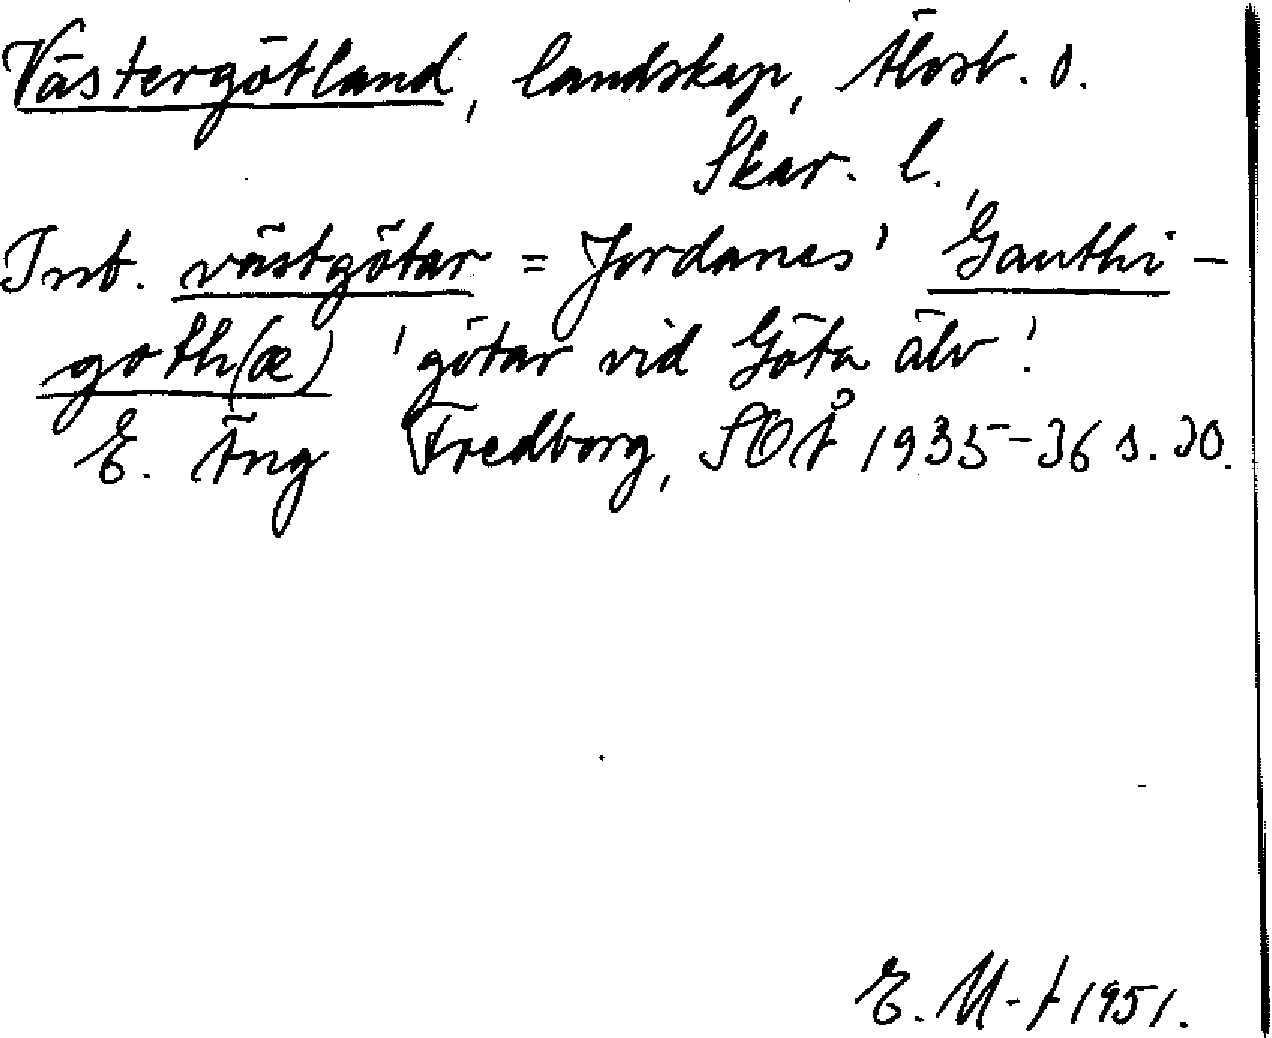 Västergötland, landskap, Älvsb. o.
Skar. l.
Inb. västgötar = Jordanes' 'Gauthi-
goth(æ) 'götar vid Göta älv'.
E. Äng Fredborg, SOÅ 1935-36 s. 30.
E. M-t 1951.